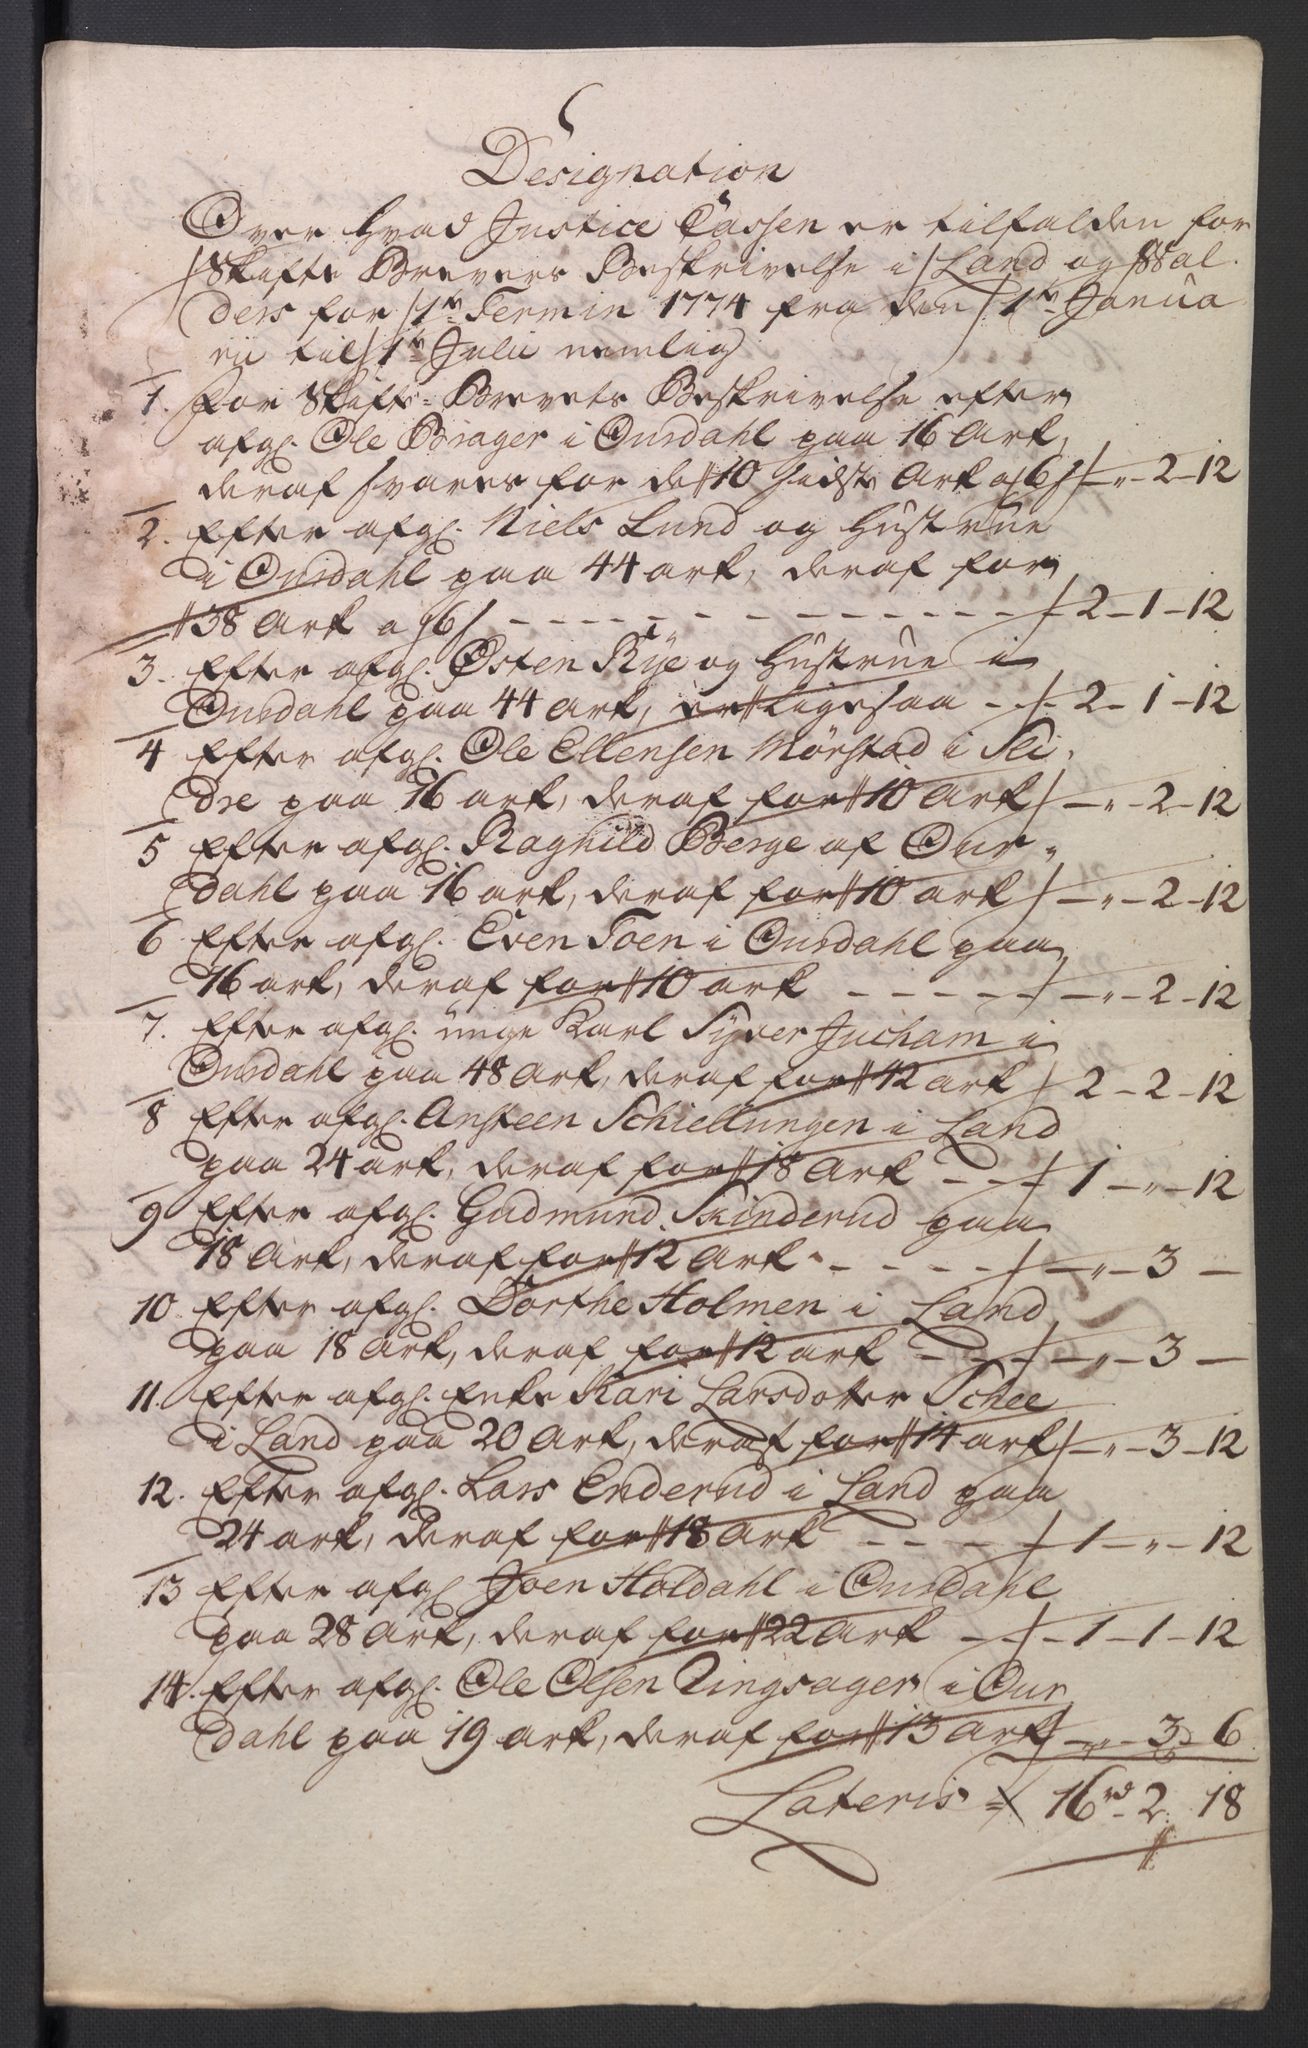 Designation
Over Hvad Justice Cassen er tilfalden for
Skifte Brevers Beskrivelse i Land og Wal-
ders for 1te Termin 1774 fra den 1te Janua
rii til 1te Julii nemlig
1. for Skifte-Brevets Beskrivelse efter
afgl. Ole Brager i Ourdahl paa 16 Ark,
deraf svares for de 10 sidste Ark a 6 s — " — 2 — 12
2. Efter afgl. Niels Lund og Hustrue
i Ourdahl paa 44 ark, deraf for
38 Ark a 6 s - - - - - - - - - - - 2 — 1 — 12
3. Efter afgl. Østen Rye og Hustrue i
Ourdahl paa 44 Ark, er ligesaa - - 2 — 1 — 12
4 Efter afgl. Ole Ellensen Mørstad i Sli-
dre paa 16 ark, deraf for 10 Ark — " — 2 — 12
5 Efter afgl. Ragnild Berge af Our-
dahl paa 16 ark, deraf for 10 ark — " — 2 — 12
6 Efter afgl. Even Toen i Ourdahl paa
16 ark, deraf for 10 ark - - - - - — " — 2 — 12
7. Efter afgl. unge Karl Syver Jucham i
Ourdahl paa 48 Ark, deraf for 42 ark 2 — 2 — 12
8 Efter afgl. Ansteen Schiellungen i Land
paa 24 ark, deraf for 18 Ark - - - 1 — " — 12
9 Efter afgl. Gudmund Skinderud paa
18 Ark, deraf for 12 Ark - - - - - — " — 3 —
10. Efter afgl. Dorthe Holmen i Land
paa 18 Ark, deraf for 12 ark - - - — " — 3 —
11. Efter afgl. Enke Kari Larsdotter Schee
i Land paa 20 Ark, deraf for 14 ark — " — 3 — 12
12. Efter afgl. Lars Enderud i Land paa
24 ark, deraf for 18 Ark - - - - - 1 — " — 12
13 Efter afgl. Joen Holdahl i Ourdahl
paa 28 Ark, deraf for 22 Ark - - - 1 — 1 — 12
14. Efter afgl. Ole Olsen Qingsager i Our
dahl paa 19 ark, deraf for 13 Ark — " — 3 — 6
Lateris = 16 rd - 2. 18